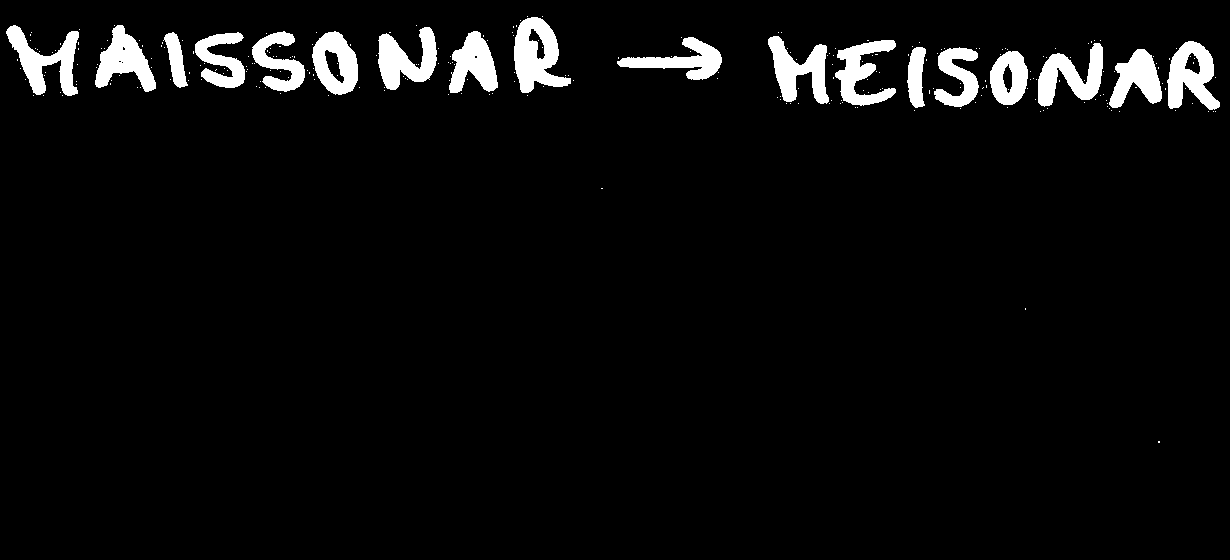 MAISSONAR → MEISONAR